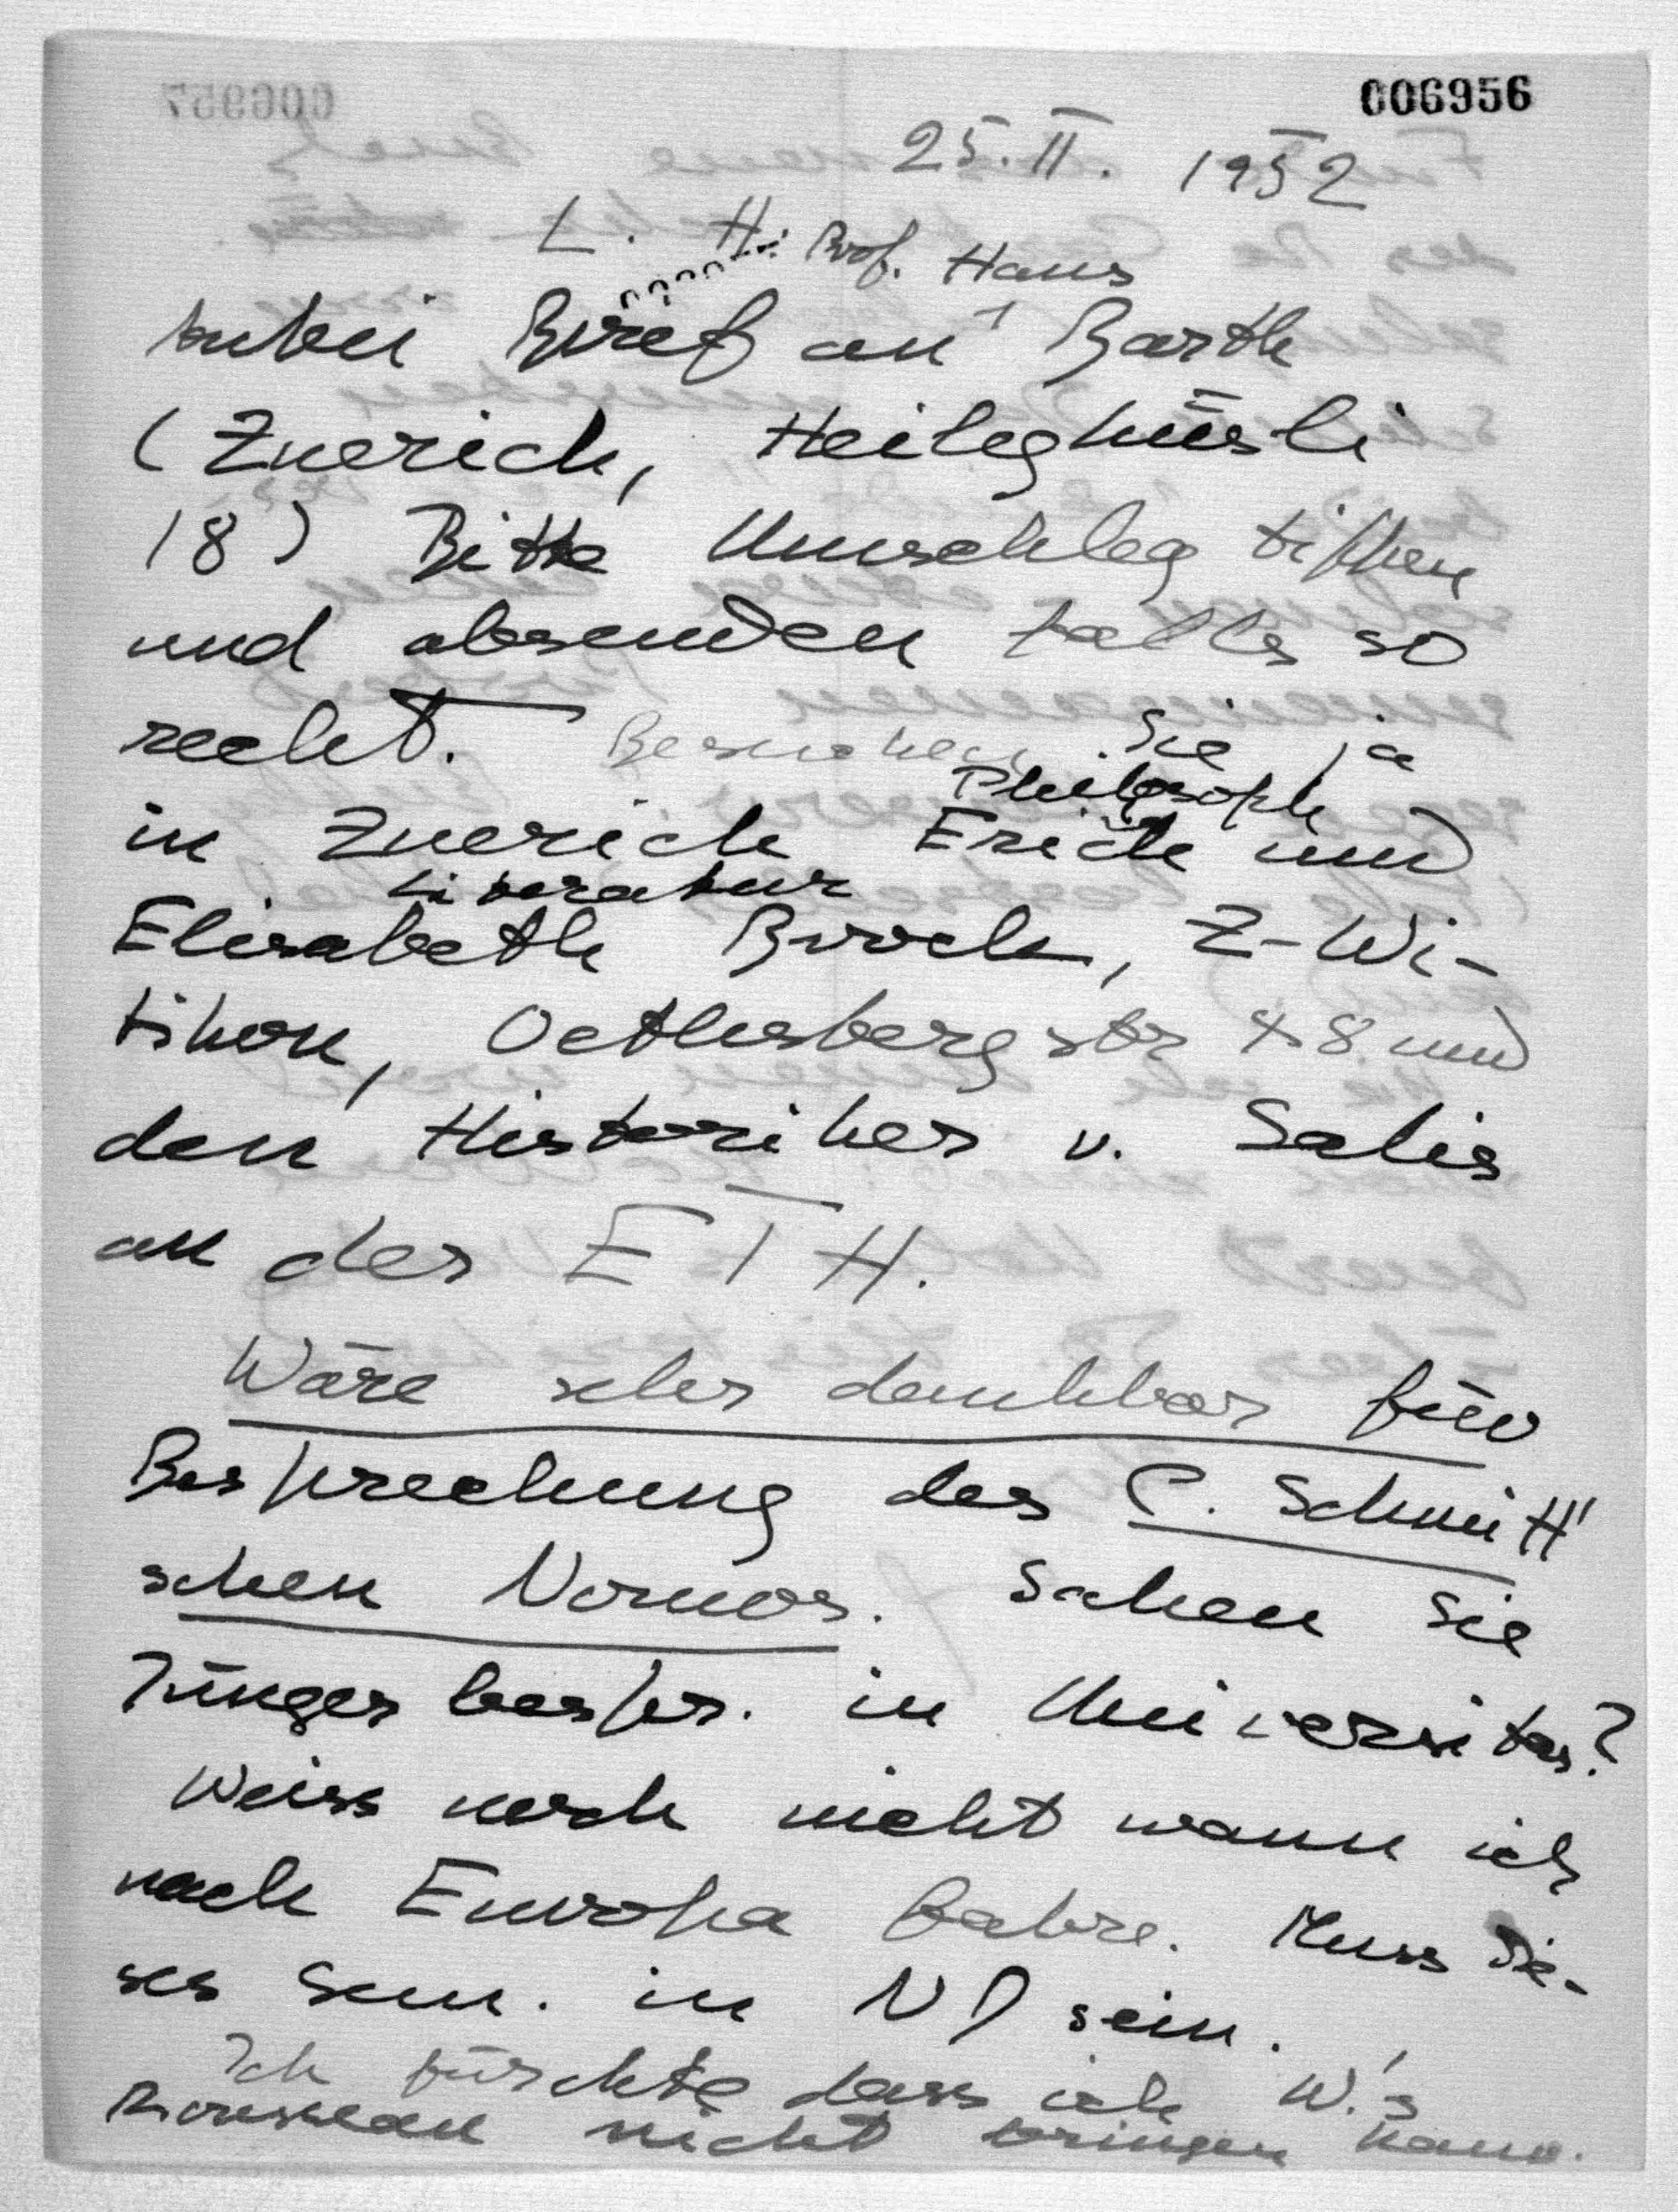 006956
25. II. 1952
L. H.:
Prof. Hans
Anbei Brief an Barth
(Zuerich, Heileghüsli
18) Bitte Umschlag tippen
und absenden falls so
recht. Besuchen Sie ja
Philosoph
in Zuerich Erich und
Literatur
Elisabeth Brock, Z-Wi-
tikon, Oetlisbergstr 48 und
den Historiker v. Salis
an der ETH.
Wäre sehr dankbar für
Besprechung des C. Schmitt'
schen Nomos. Sahen Sie
Jünger bespr. in Universitas?
Weiss noch nicht wann ich
nach Europa fahre. Muss die-
ses Sem. in ND sein.
Ich fürchte dass ich W.'s
Rousseau nicht bringen kann.